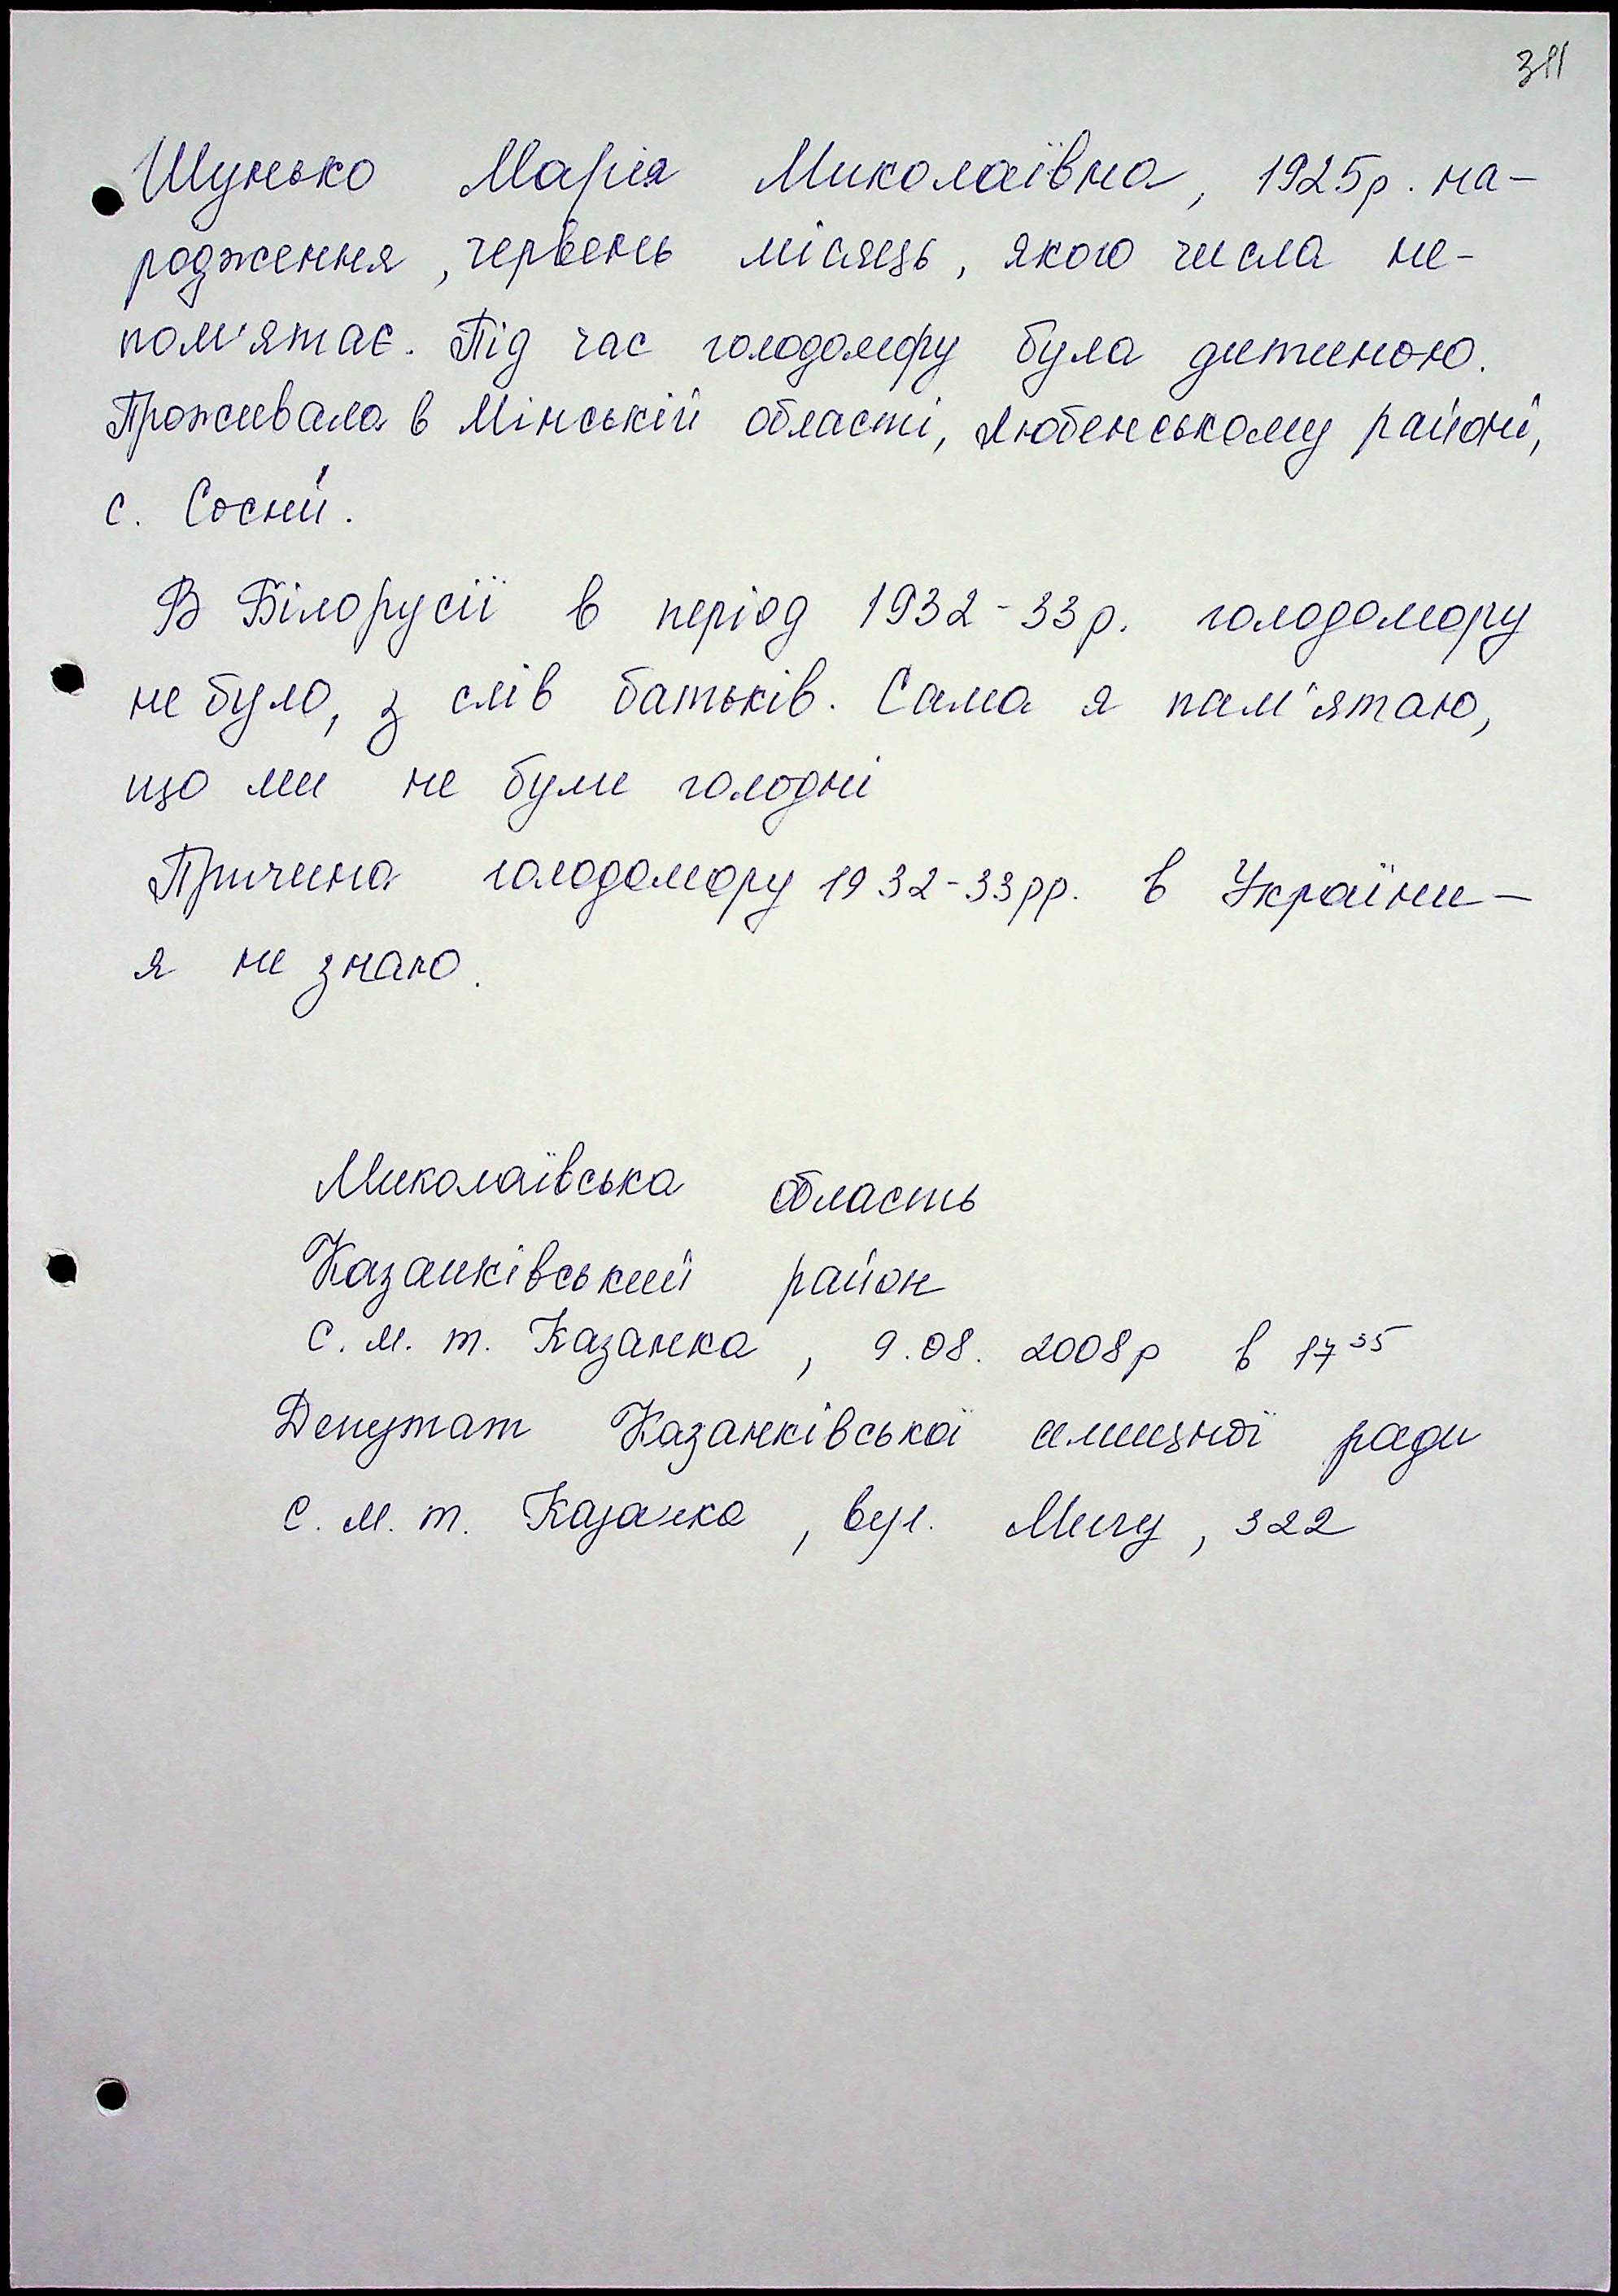 311
Шунько Марія Миколаївна, 1925р. на-
родження, червень місяць, якого числа не-
пом'ятає. Під час голодомору була дитиною.
Проживала в Мінській області, Любенському районі,
с. Сосни.
В Білорусії в період 1932-33р. голодомору
не було, з слів батьків. Сама я пам'ятаю,
що ми не були голодні
Причина голодомору 1932-33рр. в України –
я не знаю.
Миколаївська область
Казанківський район
с. м. т. Казанка, 9.08. 2008р в 17 35
Депутат Казанківської селищної ради
с. м. т. Казанка, вул. Миру, 322